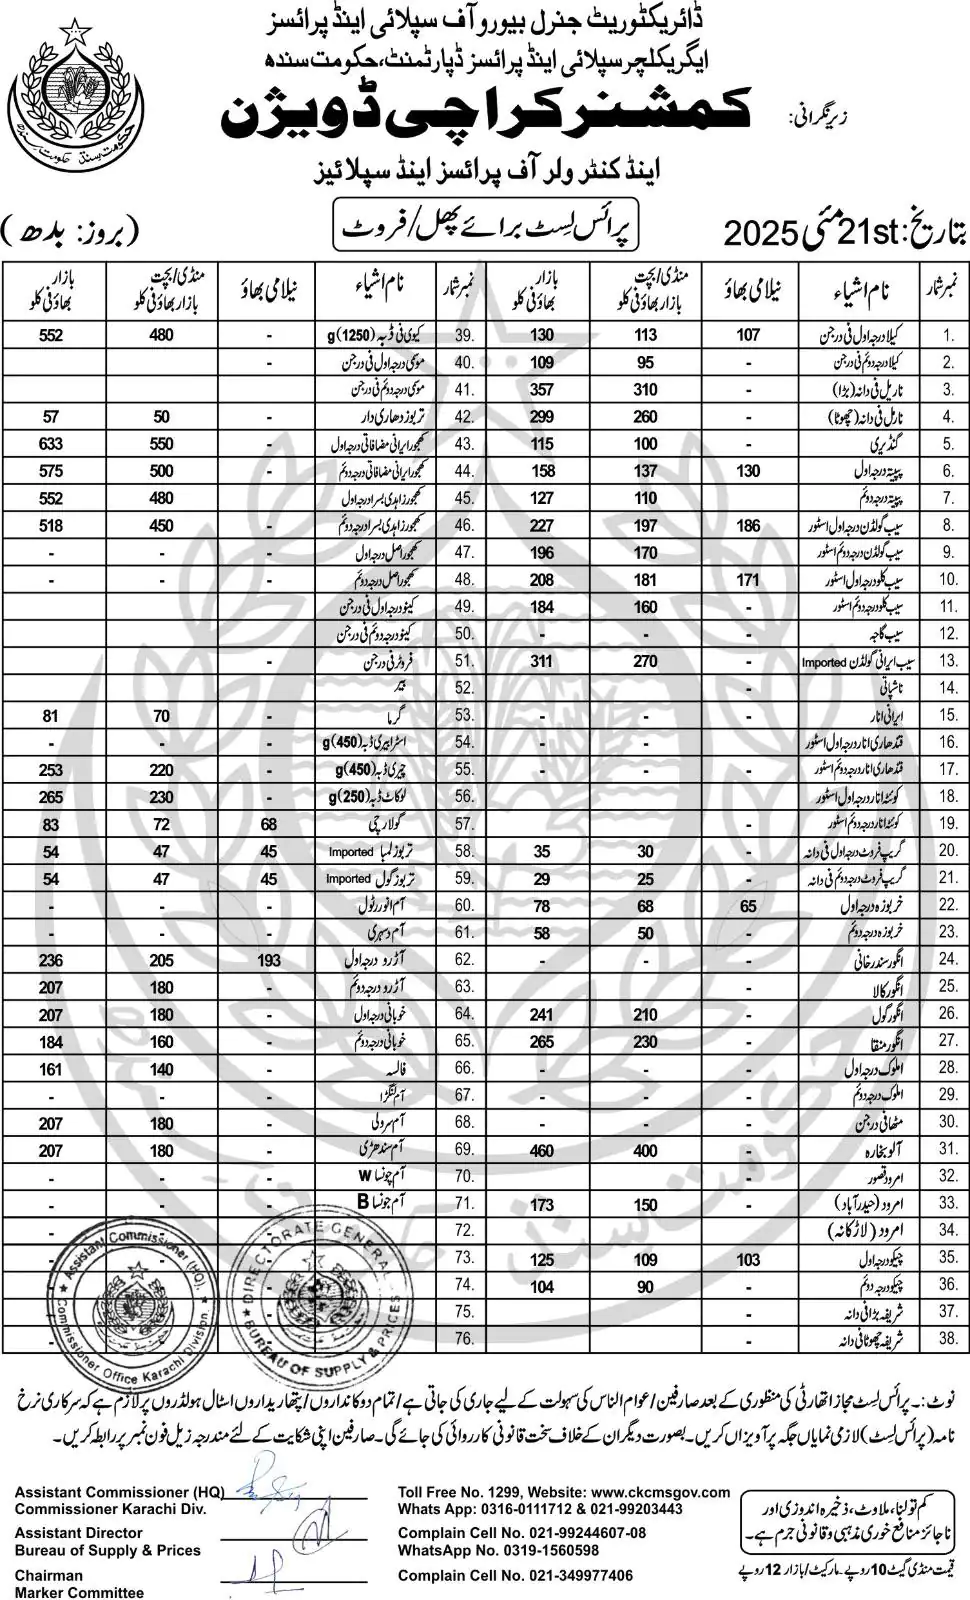 ڈائریکٹوریٹ جنرل بیورو آف سپلائی اینڈ پرائسز
ایگریکلچر سپلائی اینڈ پرائسز ڈپارٹمنٹ، حکومت سندھ
زیر نگرانی:
کمشنر کراچی ڈویژن
اینڈ کنٹرولر آف پرائسز اینڈ سپلائیز
بتاریخ: 21st مئی 2025
پرائس لسٹ برائے پھل/فروٹ
(بروز: بدھ)
نمبر شمار نام اشیاء نیلامی بھاؤ منڈی/بچت بازار بھاؤ فی کلو بازار بھاؤ فی کلو
1. کیلا درجہ اول فی درجن 107 113 130
2. کیلا درجہ دوئم فی درجن - 95 109
3. ناریل فی دانہ (بڑا) - 310 357
4. ناریل فی دانہ (چھوٹا) - 260 299
5. گنڈیری - 100 115
6. پپیتہ درجہ اول 130 137 158
7. پپیتہ درجہ دوئم - 110 127
8. سیب گولڈن درجہ اول اسٹور 186 197 227
9. سیب گولڈن درجہ دوئم اسٹور - 170 196
10. سیب کلو درجہ اول اسٹور 171 181 208
11. سیب کلو درجہ دوئم اسٹور - 160 184
12. سیب گاجہ - - -
13. سیب ایرانی گولڈن Imported - 270 311
14. ناشپاتی -
15. ایرانی انار - - -
16. قندھاری انار درجہ اول اسٹور - - -
17. قندھاری انار درجہ دوئم اسٹور - - -
18. کوئٹہ انار درجہ اول اسٹور
19. کوئٹہ انار درجہ دوئم اسٹور -
20. گریپ فروٹ درجہ اول فی دانہ - 30 35
21. گریپ فروٹ درجہ دوئم فی دانہ - 25 29
22. خربوزہ درجہ اول 65 68 78
23. خربوزہ درجہ دوئم - 50 58
24. انگور سندرخانی - - -
25. انگور کالا
26. انگور گول - 210 241
27. انگور منقا - 230 265
28. املوک درجہ اول - - -
29. املوک درجہ دوئم - - -
30. مٹھا فی درجن -
31. آلو بخارہ - 400 460
32. امرود قصور -
33. امرود (حیدرآباد) - 150 173
34. امرود (لاڑکانہ)
35. چیکو درجہ اول 103 109 125
36. چیکو درجہ دوئم - 90 104
37. شریفہ بڑا فی دانہ -
38. شریفہ چھوٹا فی دانہ -
نمبر شمار نام اشیاء نیلامی بھاؤ منڈی/بچت بازار بھاؤ فی کلو بازار بھاؤ فی کلو
39. کیوی فی ڈبہ (1250)g - 480 552
40. موسمی درجہ اول فی درجن -
41. موسمی درجہ دوئم فی درجن
42. تربوز دھاری دار - 50 57
43. کھجور ایرانی مضافاتی درجہ اول - 550 633
44. کھجور ایرانی مضافاتی درجہ دوئم - 500 575
45. کھجور زاہدی بسرا درجہ اول - 480 552
46. کھجور زاہدی بسرا درجہ دوئم - 450 518
47. کھجور اصل درجہ اول - - -
48. کھجور اصل درجہ دوئم - - -
49. کینو درجہ اول فی درجن -
50. کینو درجہ دوئم فی درجن
51. فروٹر فی درجن -
52. بیر
53. گرما - 70 81
54. اسٹرابیری ڈبہ (450)g - - -
55. چیری ڈبہ (450)g - 220 253
56. لوکاٹ ڈبہ (250)g - 230 265
57. گولارچی 68 72 83
58. تربوز لمبا Imported 45 47 54
59. تربوز گول Imported 45 47 54
60. آم انور رٹول - - -
61. آم دسہری - - -
62. آڑو درجہ اول 193 205 236
63. آڑو درجہ دوئم - 180 207
64. خوبانی درجہ اول - 180 207
65. خوبانی درجہ دوئم - 160 184
66. فالسہ - 140 161
67. آم لنگڑا - - -
68. آم سرولی - 180 207
69. آم سندھڑی - 180 207
70. آم چونسا W - - -
71. آم چونسا B - - -
72.
73.
74.
75.
76.
Assistant Commissioner (HQ).
Commissioner Office Karachi Division.
DIRECTORATE GENERAL
BUREAU OF SUPPLY & PRICES
نوٹ:۔ پرائس لسٹ مجاز اتھارٹی کی منظوری کے بعد صارفین/عوام الناس کی سہولت کے لیے جاری کی جاتی ہے/تمام دوکانداروں/پتھاریداروں اسٹال ہولڈروں پر لازم ہے کہ سرکاری نرخ
نامہ (پرائس لسٹ) لازمی نمایاں جگہ پر آویزاں کریں۔ بصورت دیگر ان کے خلاف سخت قانونی کارروائی کی جائے گی۔ صارفین اپنی شکایت کے لئے مندرجہ زیل فون نمبر پر رابطہ کریں۔
Assistant Commissioner (HQ)
Commissioner Karachi Div.
Assistant Director
Bureau of Supply & Prices
Chairman
Marker Committee
Toll Free No. 1299, Website: www.ckcmsgov.com
Whats App: 0316-0111712 & 021-99203443
Complain Cell No. 021-99244607-08
WhatsApp No. 0319-1560598
Complain Cell No. 021-349977406
کم تولنا، ملاوٹ، ذخیرہ اندوزی اور
ناجائز منافع خوری مذہبی و قانونی جرم ہے۔
قیمت منڈی گیٹ 10 روپے۔ مارکیٹ/بازار 12 روپے
حکومت سندھ